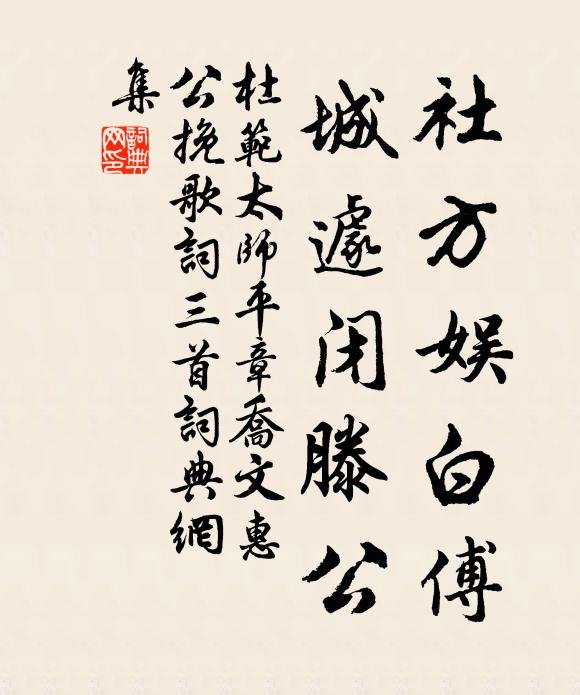 社方娱白傅
城遽闭滕公
杜範太師平章喬文惠
公挽歌詞三首詞典網
集
詞典网印